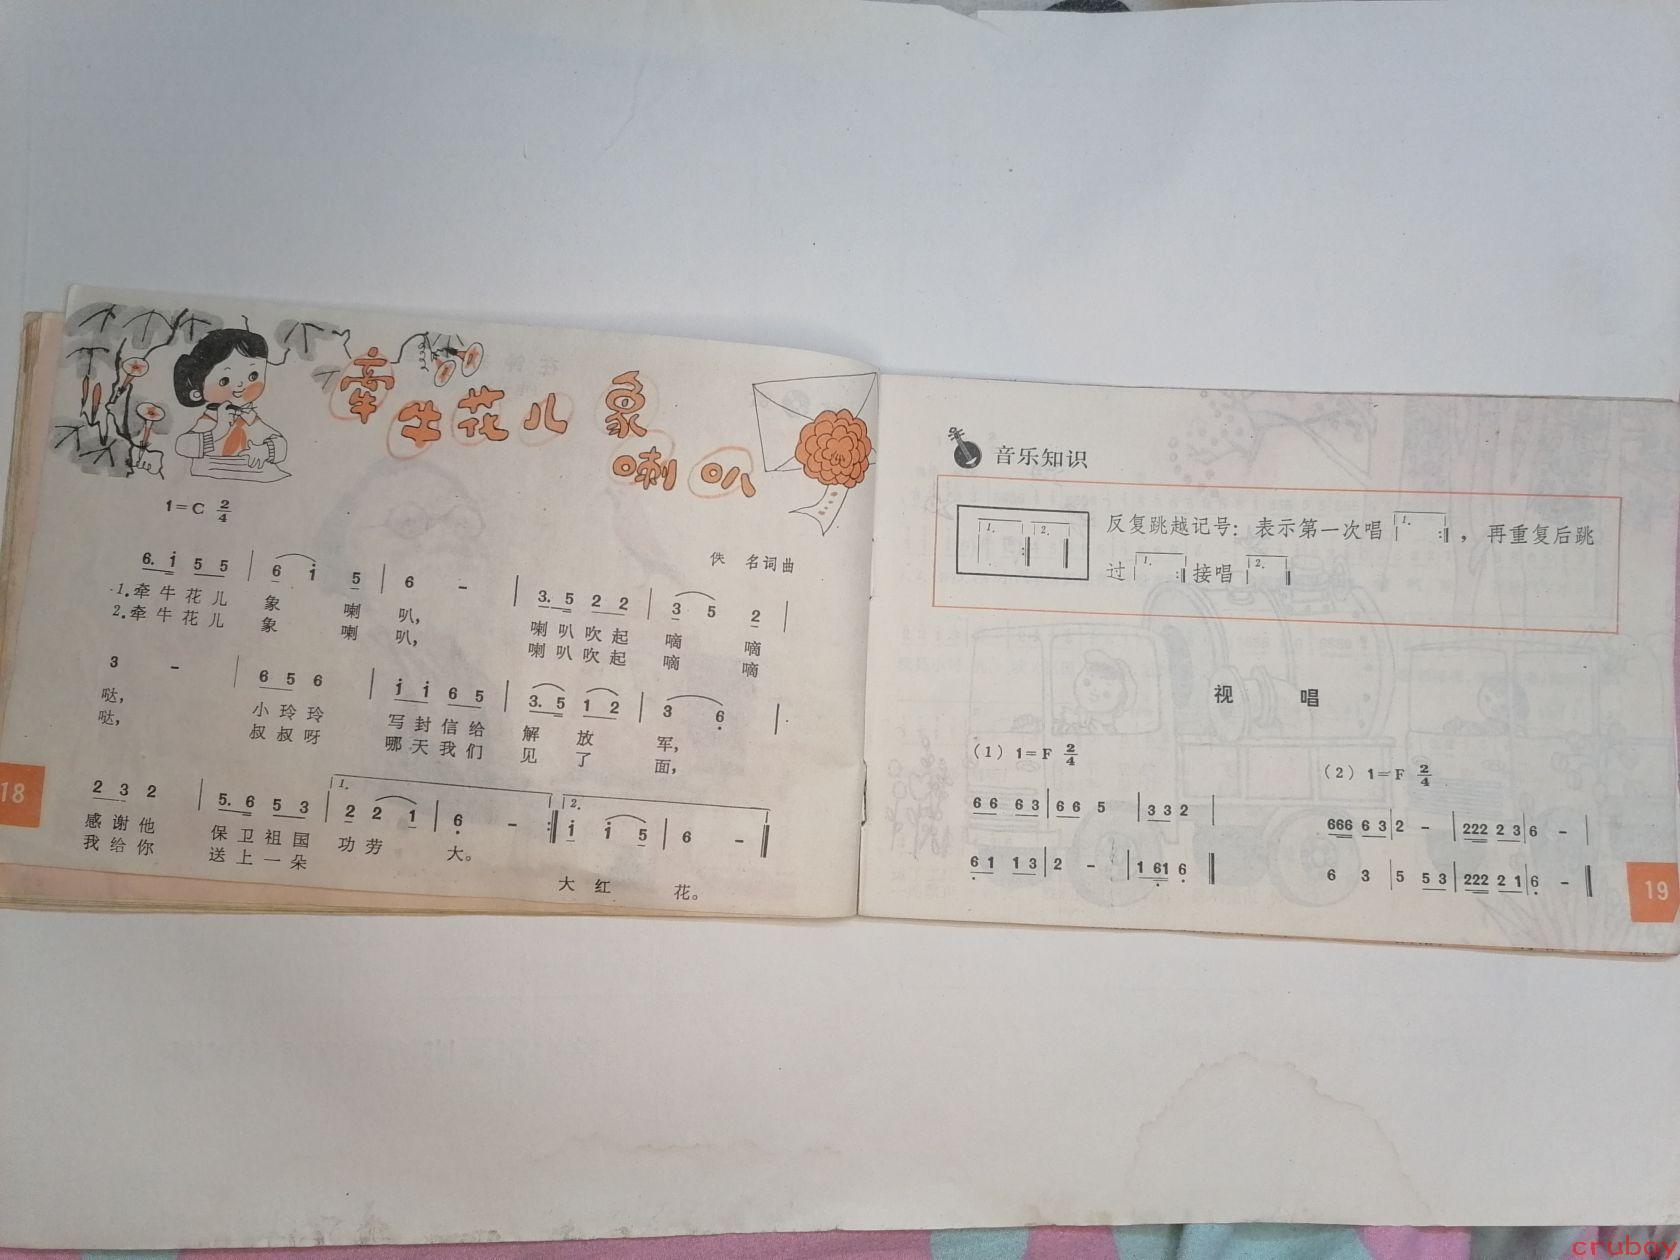 牵牛花儿象
喇叭
1=C 2/4
佚 名词曲
6. i 5 5 | 6 i 5 | 6 - | 3. 5 2 2 | 3 5 2 |
1.牵牛花儿 象 喇 叭， 喇叭吹起 嘀 嘀
2.牵牛花儿 象 喇 叭， 喇叭吹起 嘀 嘀
3 - | 6 5 6 | i i 6 5 | 3. 5 1 2 | 3 6 |
哒， 小玲玲 写封信给 解 放 军，
哒， 叔叔呀 哪天我们 见 了 面，
2 3 2 | 5. 6 5 3 | 1. 2 2 1 | 6 - :‖ 2. i i 5 | 6 - ‖
感谢他 保卫祖国 功劳 大。
我给你 送上一朵
大 红 花。
18
音乐知识
1. 2. 反复跳越记号：表示第一次唱 1. ，再重复后跳
过 1. 接唱 2.
视 唱
（1）1=F 2/4
6 6 6 3 | 6 6 5 | 3 3 2 |
6 1 1 3 | 2 - | 1 6 1 6 ‖
（2）1=F 2/4
666 6 3 | 2 - | 222 2 3 | 6 - |
6 3 | 5 5 3 | 222 2 1 | 6 - ‖
19
cruboy